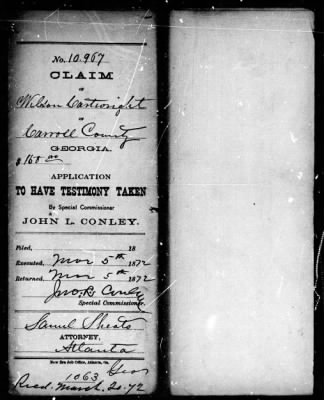 No. 10.967
CLAIM
OF
Wilson Cartwright
OF
Carroll County
GEORGIA.
$160.00
APPLICATION
TO HAVE TESTIMONY TAKEN
By Special Commissioner
JOHN L. CONLEY.
Filed, 18
Executed, Mar 5th 1872
Returned, Mar 5th 1872
Jno. L. Conley
Special Commissioner.
Samul Sheats
ATTORNEY,
Atlanta
New Era Job Office, Atlanta, Ga.
1063 Geo
Recd. March. 20. 72